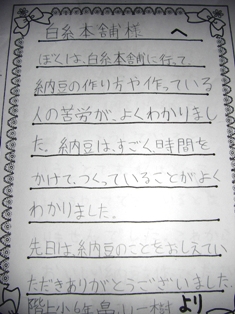 白糸本舗様 へ
ぼくは、白糸本舗に行って、
納豆の作り方や作っている
人の苦労が、よくわかりまし
た。納豆は、すごく時間を
かけて、つくっていることがよく
わかりました。
先日は、納豆のことをおしえてい
ただきありがとうございました。
階上小6年畠山一樹 より